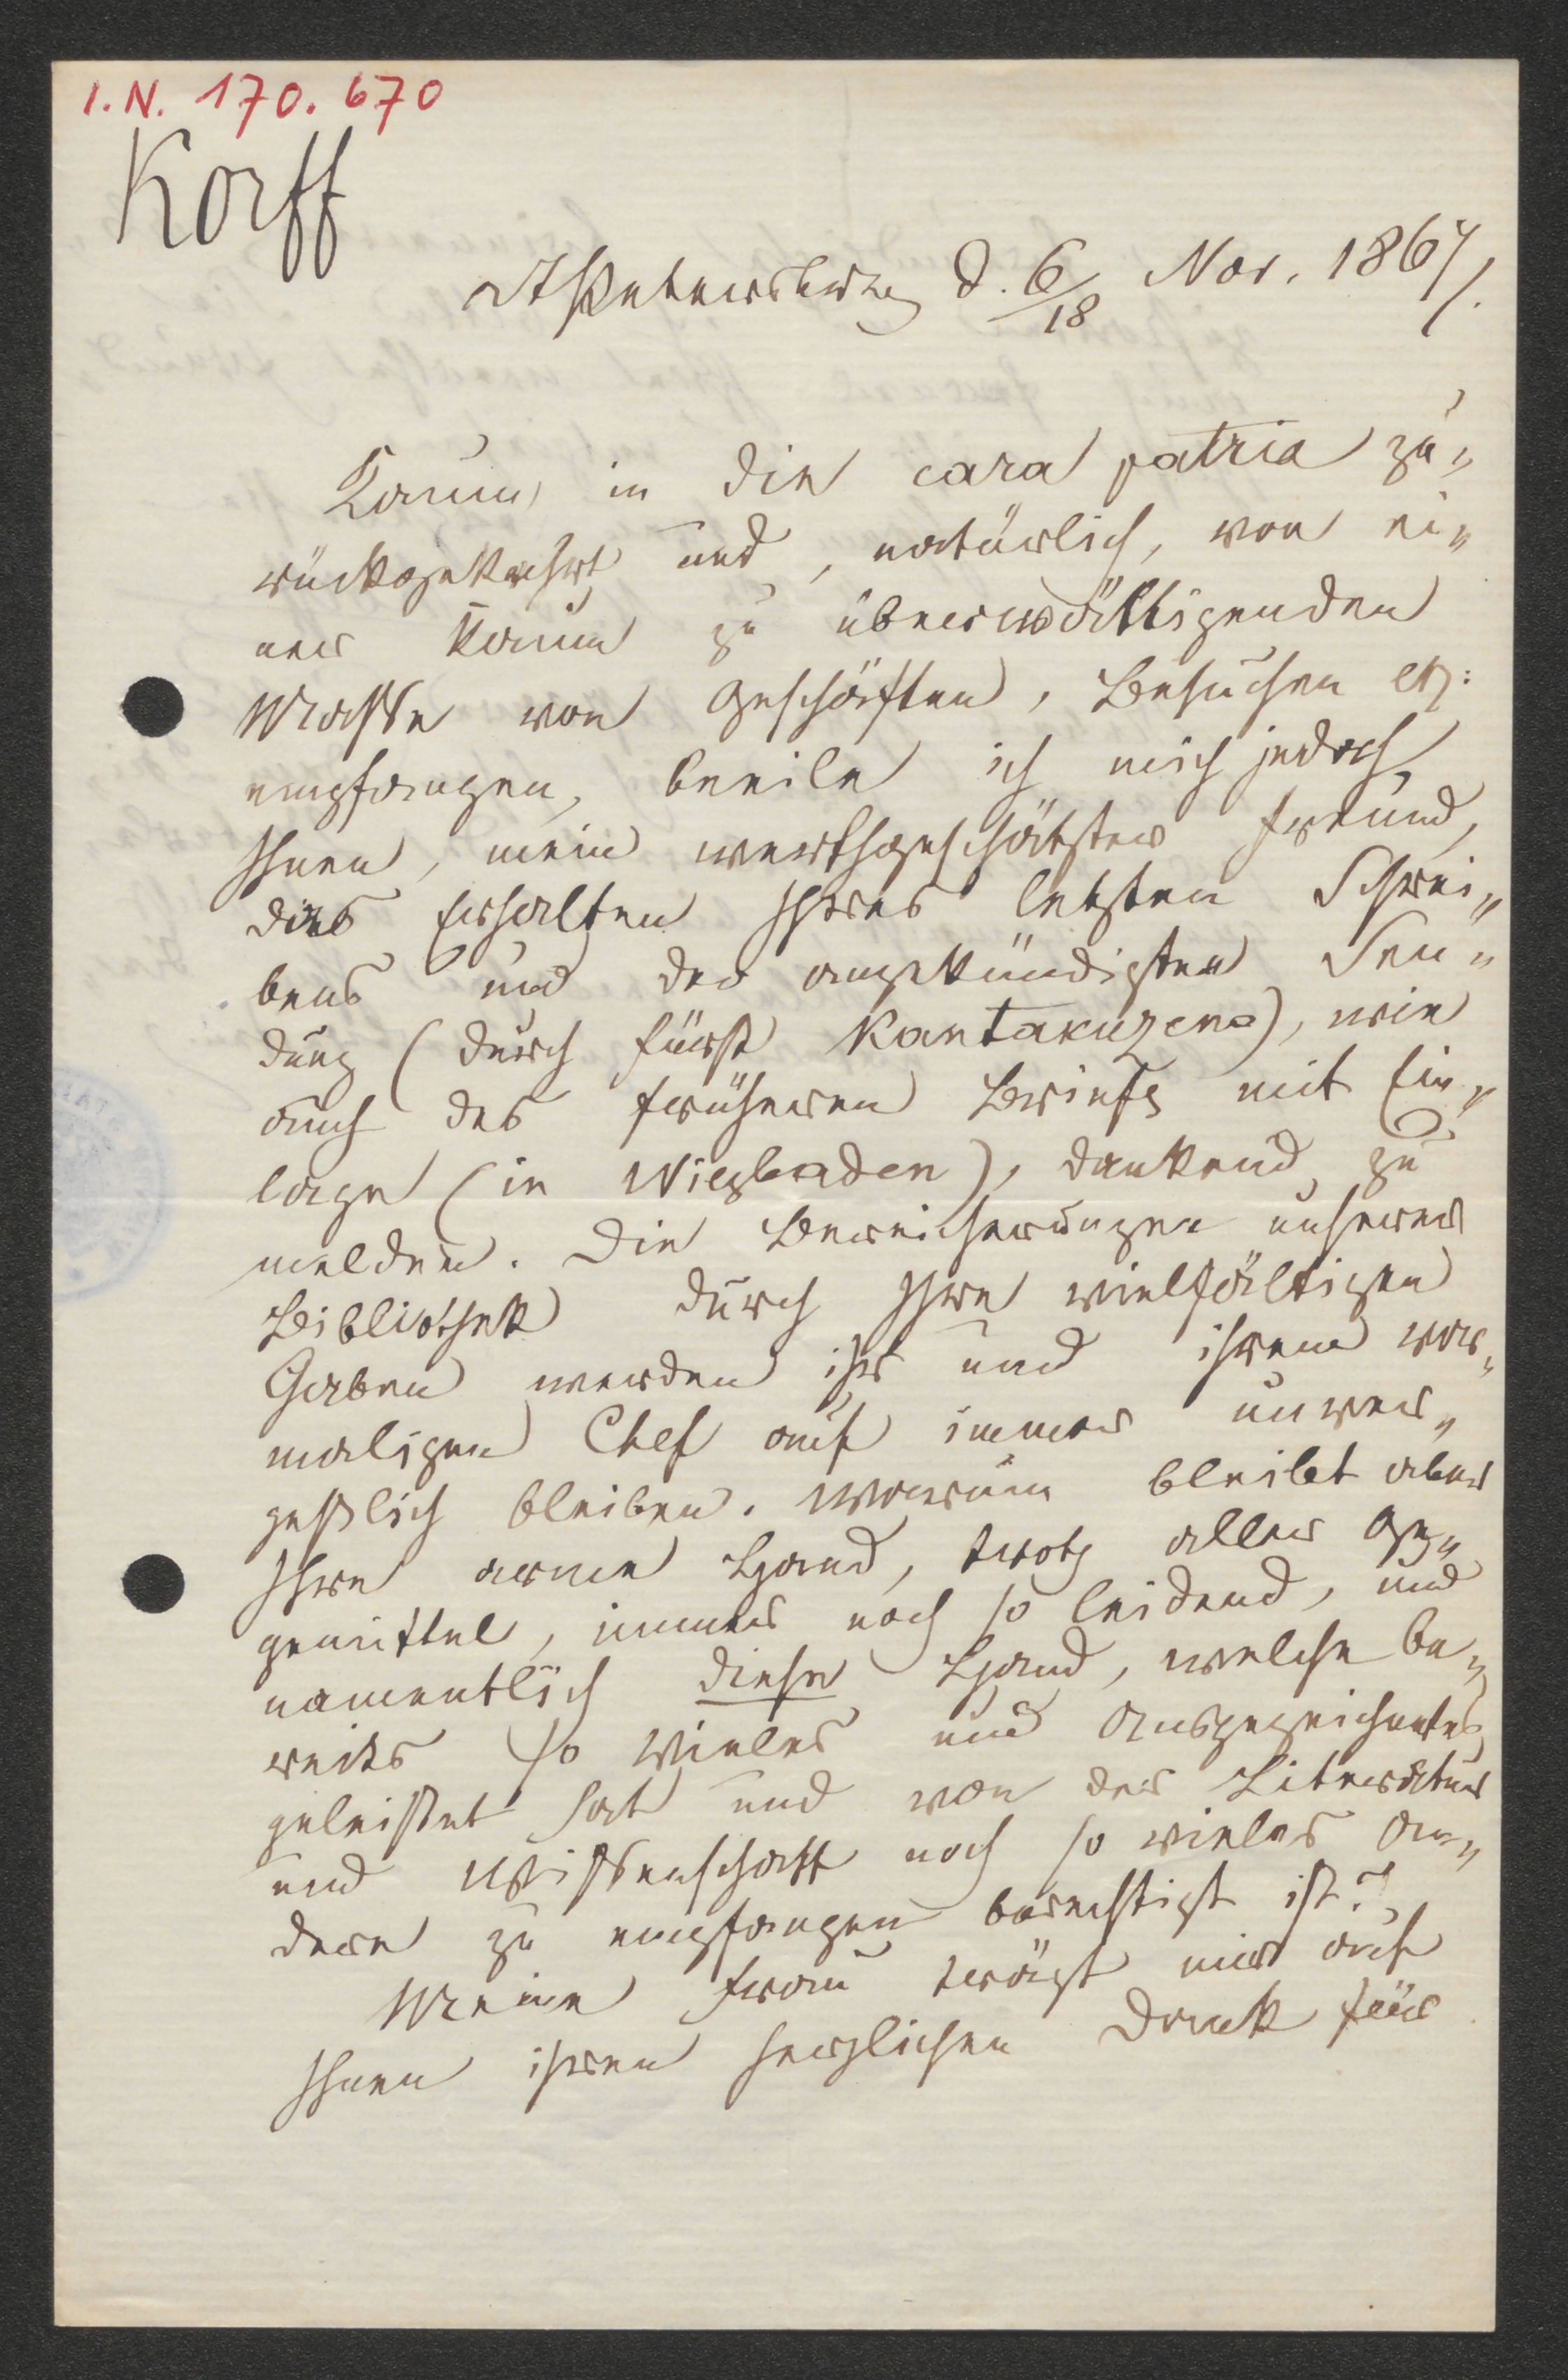 I. N. 170. 670
Korff
St Petersburg d. 6/18 Nov. 1867.
Kaum in die cara patria zu„
rückgekehrt und, natürlich, von ei„
ner kaum zu überwältigenden
Masse von Geschäften, Besuchen etz:
empfangen, beeile ich mich jedoch,
Ihnen, mein werthgeschätzter Freund,
das Erhalten Ihres letzten Schrei„
bens und der angekündigten Sen„
dung (durch Fürst Kantakuzene), wie
auch des früheren Briefs mit Ein„
lage (in Wiesbaden), dankend zu
melden. Die Bereicherungen unserer
Bibliothek durch Ihre vielfältigen
Gaben werden ihr und ihrem vor„
maligen Chef auf immer unver„
geßlich bleiben. Warum bleibt aber
Ihre arme Hand, trotz aller Ge„
genmittel, immer noch so leidend, und
namentlich diese Hand, welche be„
reits so Vieles und Ausgezeichnetes
geleistet hat und von der Literatur
und Wissenschaft noch so vieles An„
dere zu empfangen berechtigt ist?
Meine Frau trägt mir auf
Ihnen ihren herzlichen Dank für